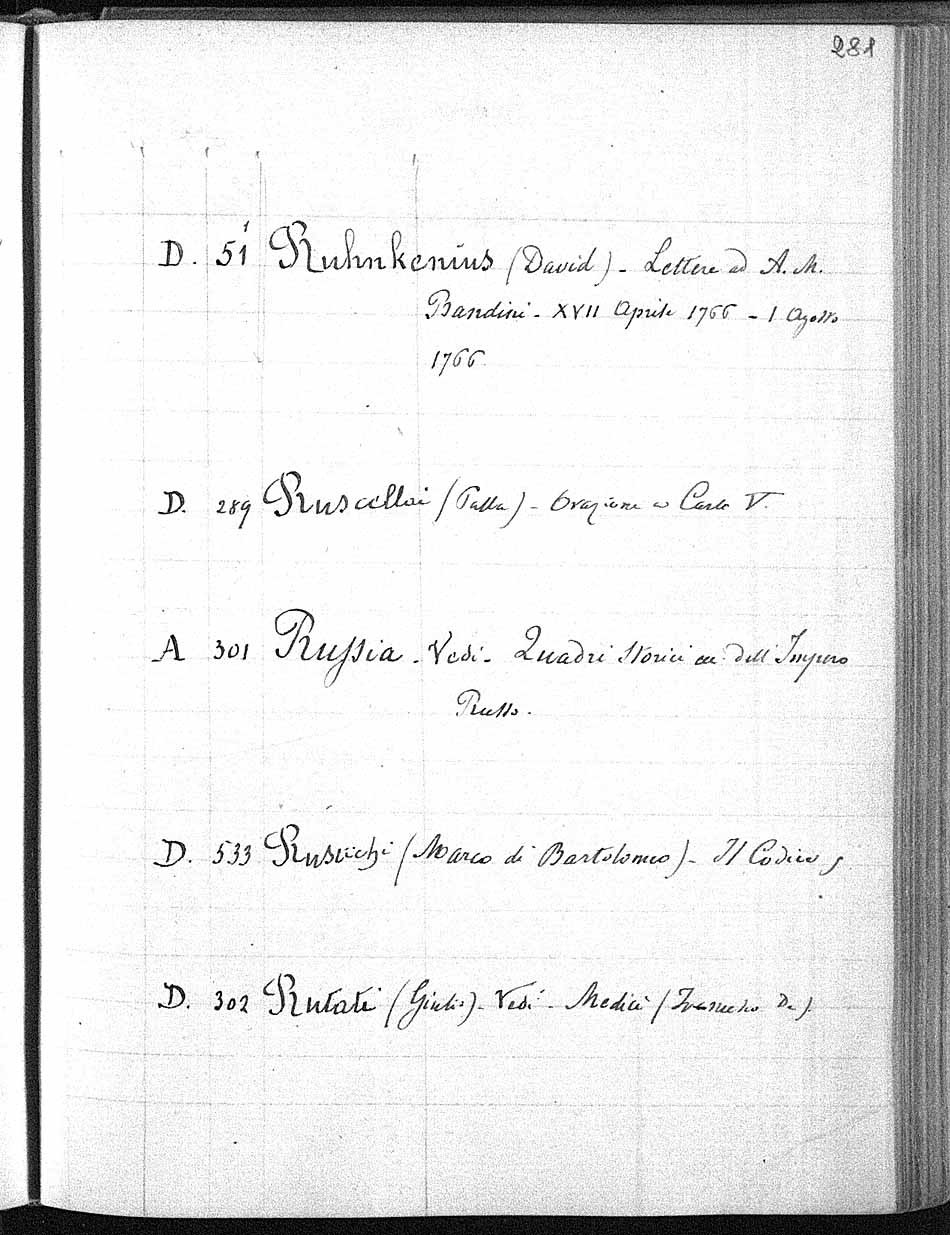 281
D. 51¹ Ruhnkenius (David) - Lettere ad A. M.
Bandini - XVII Aprile 1766 - 1 Agosto
1766.
D. 289 Ruscellai (Palla) - Orazione a Carlo V.
A 301 Russia - Vedi - Quadri Storici dell'Impero
Russo.
D. 533 Rustichi (Marco di Bartolomeo) - Il Codice
D. 302 Rutati (Giulio) - Vedi - Medici (Francesco De).